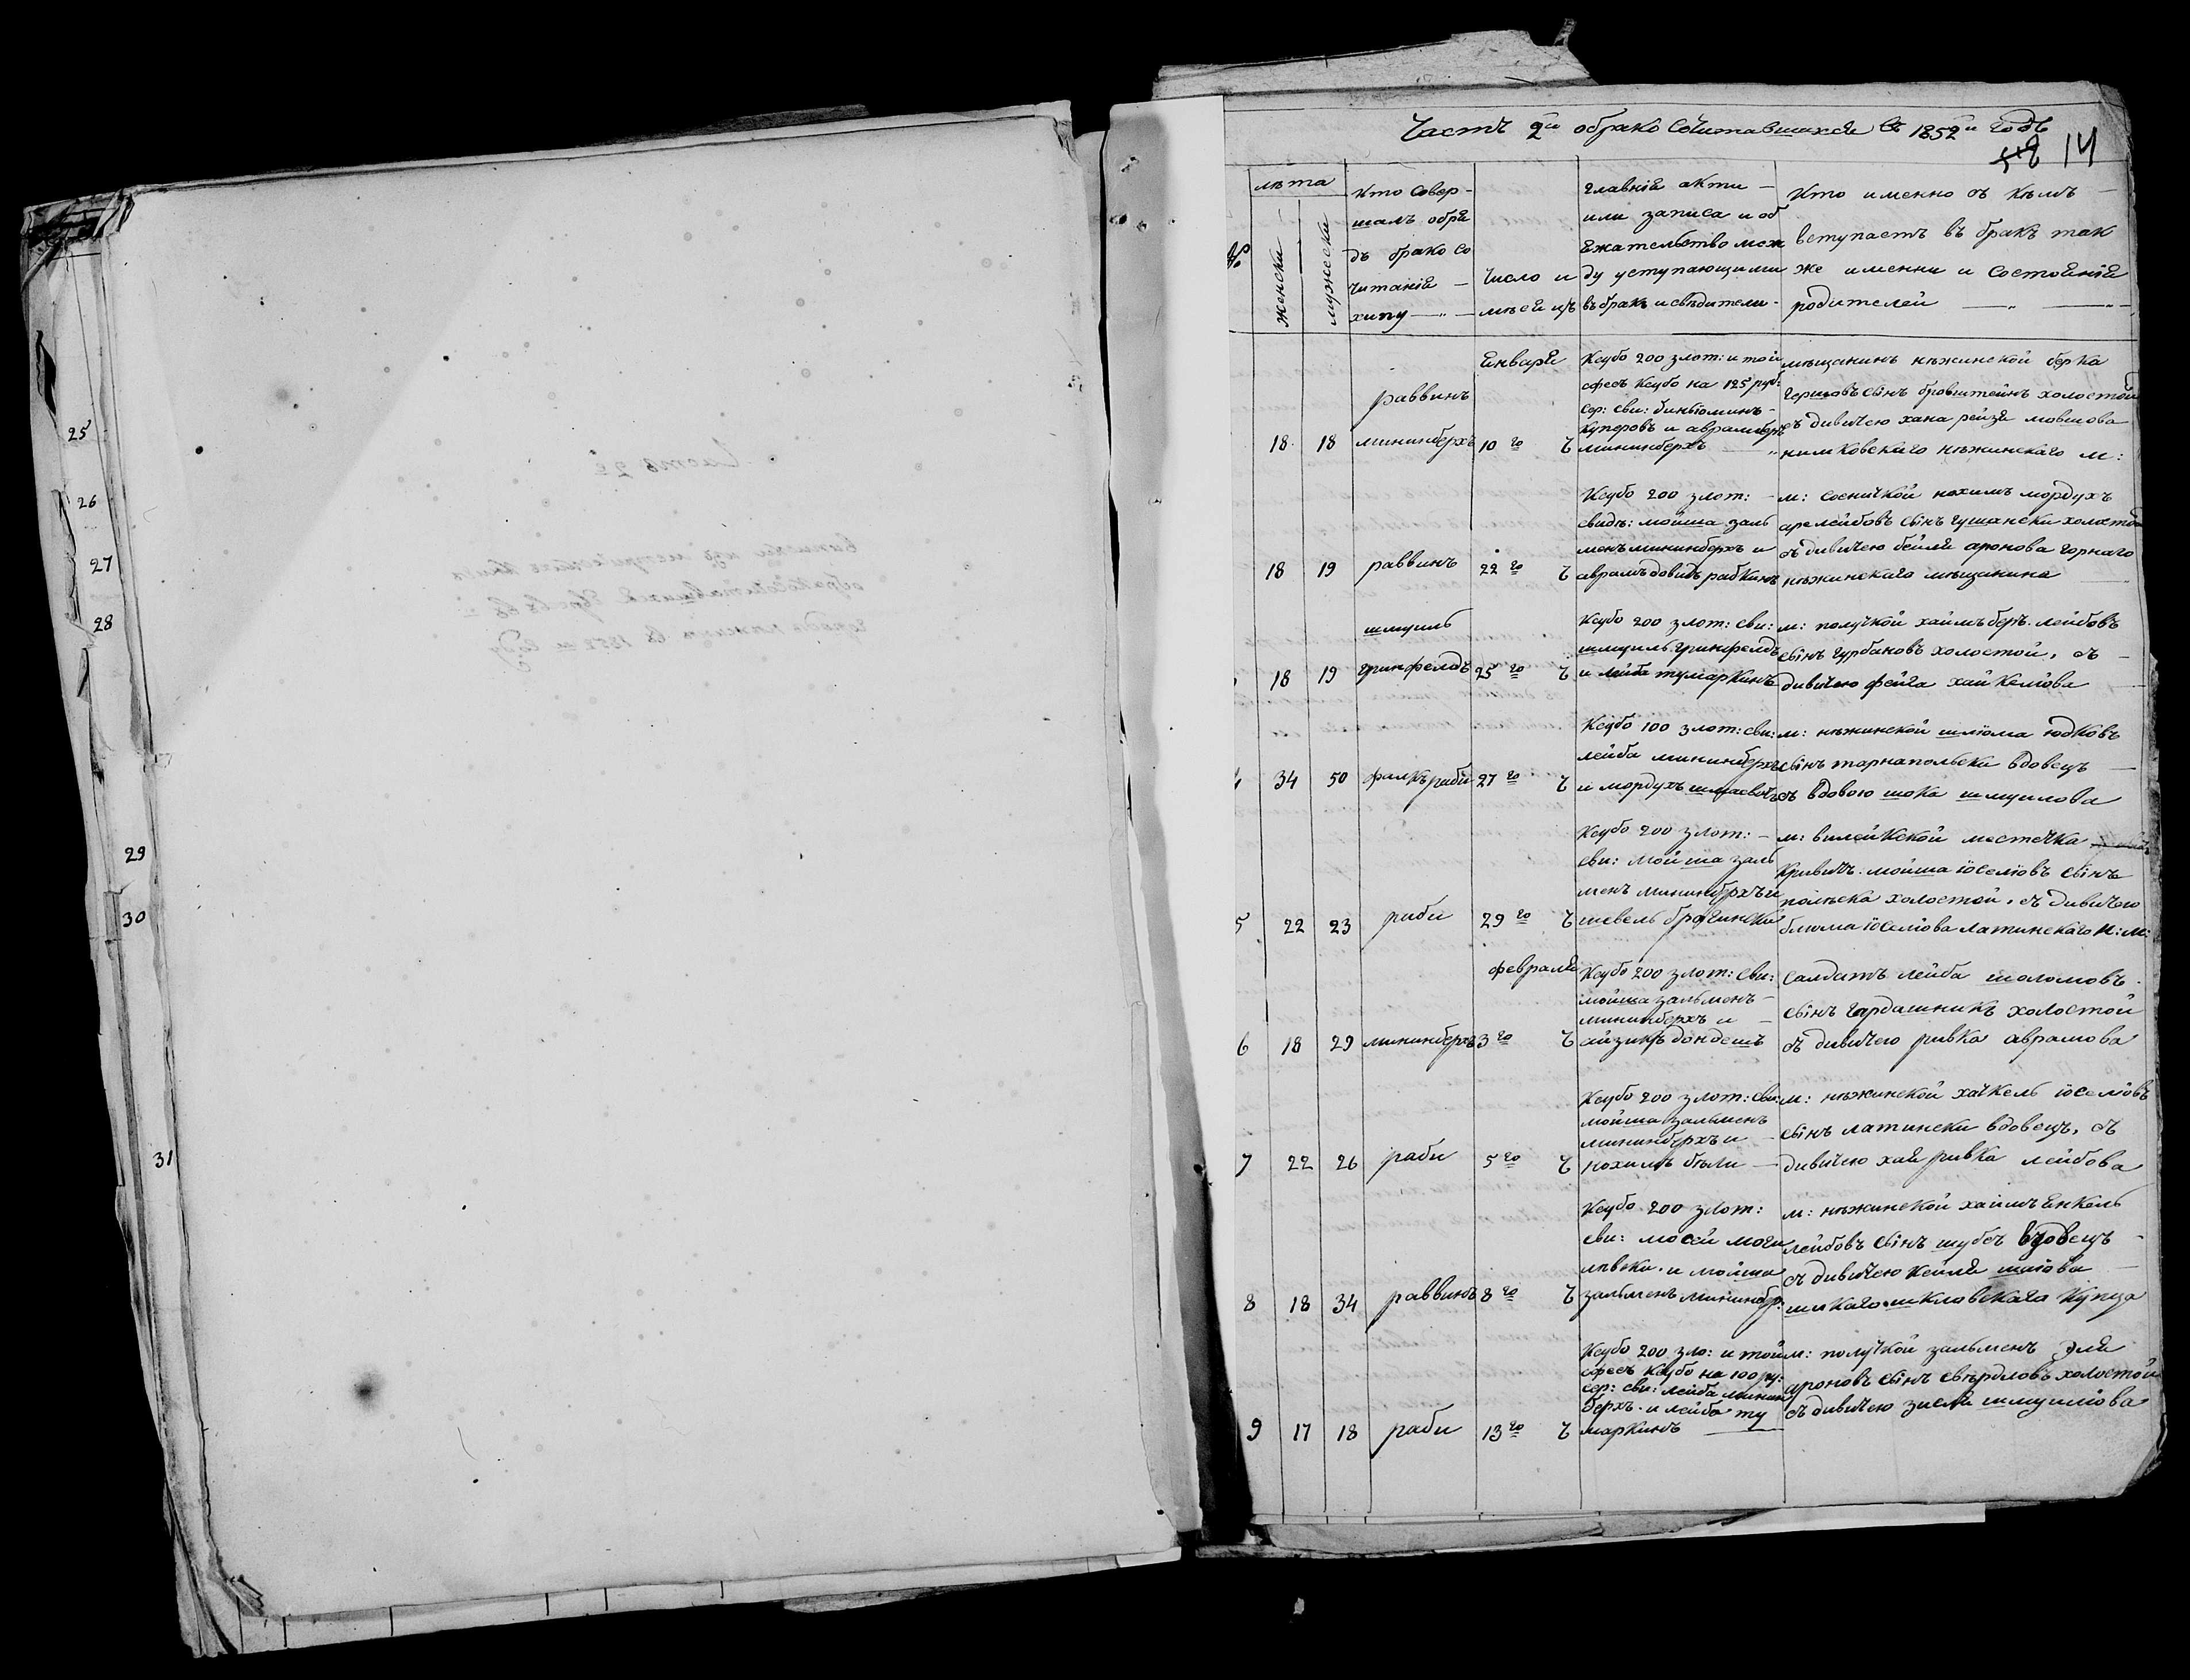 25
26
27
28
29
30
31
Часть 2ю обрако сочитавшихся въ 1852м годѣ
14
№
лѣта
женски
мужески
кто совер-
шалъ обря
дъ брако со
читанія —
хипу — " —
число и
мѣсецъ
главнія акти —
или записа и об
вжательство меж
ду уступающими
въ бракъ и свѣдители -
Кто именно съ кѣмъ —
вступаетъ въ бракъ так
же именни и состоянія
родителей — " — " —
18
18
раввинъ
мининберхъ
Января
10 го
Ксубо 200 злот: и той
сфесъ Ксубо на 125 руб:
сер: сви: биньоминъ -
куперовъ и аврамберъ
мининберхъ — "
мѣщанинъ нѣжинской берка
Гершовъ сынъ бровштейнъ холостой
съ дивичею хана рейзя мовшова
нимковскаго нѣжинскаго м:
18
19
раввинъ
22 го
Ксубо 200 злот: -
свидѣ: мойша заль
менъ мининберхъ и
аврамъ довидъ рабкинъ
м: сосничкой нохимъ мордухъ
аре лейбовъ сынъ гушански холостой
съ дивичею бейля аронова горнаго
нѣжинскаго мѣщанина
18
19
шмуиль
гринфелдъ
25 го
Ксубо 200 злот: сви:
шмуиль гринфелдъ
и лейба тумаркинъ
м: получкой хаимъ беръ лейбовъ
сынъ гурбановъ холостой, съ —
дивичею фейга хайкелева
34
50
фалкъ раби
27 го
Ксубо 100 злот: сви:
лейба мининберхъ
и мордухъ шмаевичъ
м: нѣжинской шліома юдковъ
сынъ тарнапольски вдовецъ —
съ вдовою шока шмуилова
5
22
23
раби
29 го
Ксубо 200 злот: -
сви: мойша заль
менъ мининберхъ и
шевель брагински
м: вилейкской местечка
кривичъ мойша іоселіовъ сынъ
полѣска холостой, съ дивичею
блюма іоселіова латинскаго н: м:
6
18
29
мининберхъ
февраля
3 го
Ксубо 200 злот: сви:
мойша зальменъ —
мининберхъ и —
айзикъ дондешъ
салдатъ лейба шоломовъ
сынъ гардашникъ холостой
съ дивичею ривка аврамова
7
22
26
раби
5 го
Ксубо 200 злот: сви:
мойша зальменъ
мининберхъ и —
нохимъ были —
м: нѣжинской хачкель іоселіовъ
сынъ латински вдовецъ, съ
дивичею хая ривка лейбова
8
18
34
раввинъ
8 го
Ксубо 200 злот:
сви: мосей моги
левски и мойша
зальменъ мининбр:
м: нѣжинской хаимъ Енкель
лейбовъ сынъ шубеч вдовецъ -
съ дивичею кейля шаіова —
шкловскаго купца
9
17
18
раби
13 го
Ксубо 200 зло: и той
сфесъ Ксубо на 100 ру:
сер: сви: лейба минин
берхъ и лейба ту
маркинъ —
м: получкой зальменъ эля
ароновъ сынъ свѣрдловъ холостой
съ дивичею зисля шмуиліова